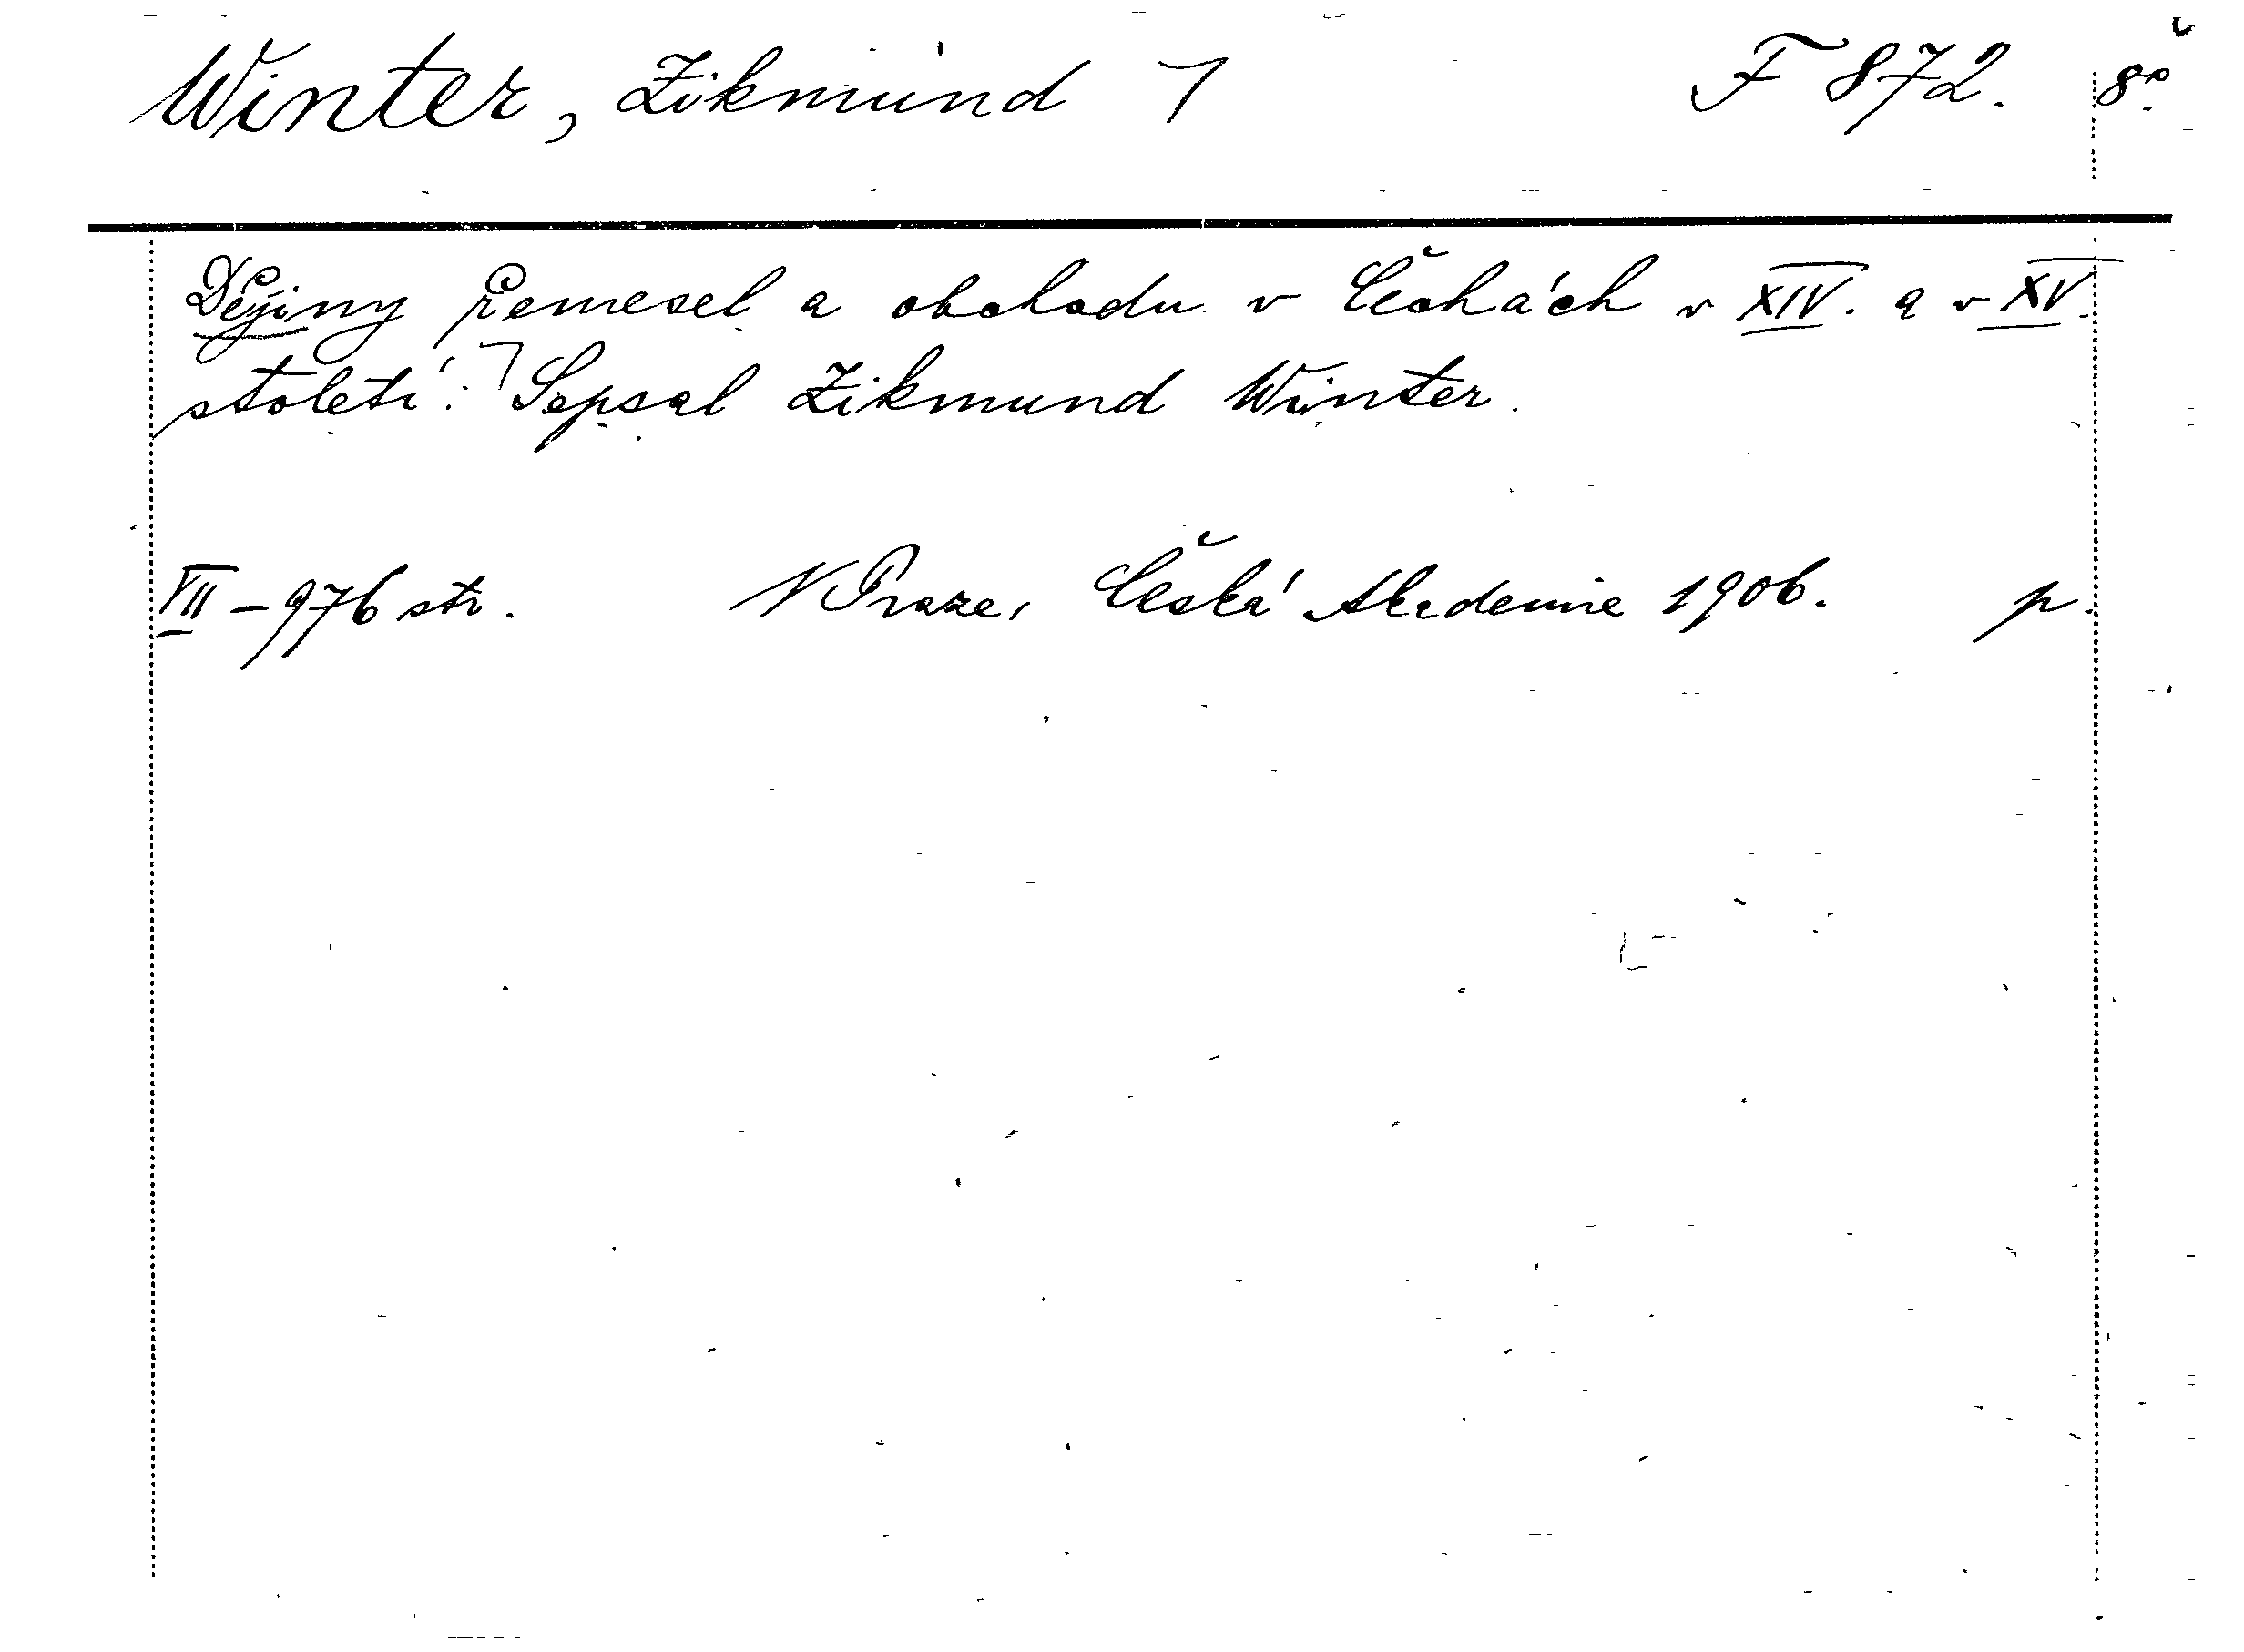 Winter, Zikmund ⌉ F 872. 8°.
Dějiny řemesel a obchodu v Čechách v XIV. a v XV.
století.⌉ Sepsal Zikmund Winter.
VII – 976 str. V Praze, Česká Akademie 1906. p.